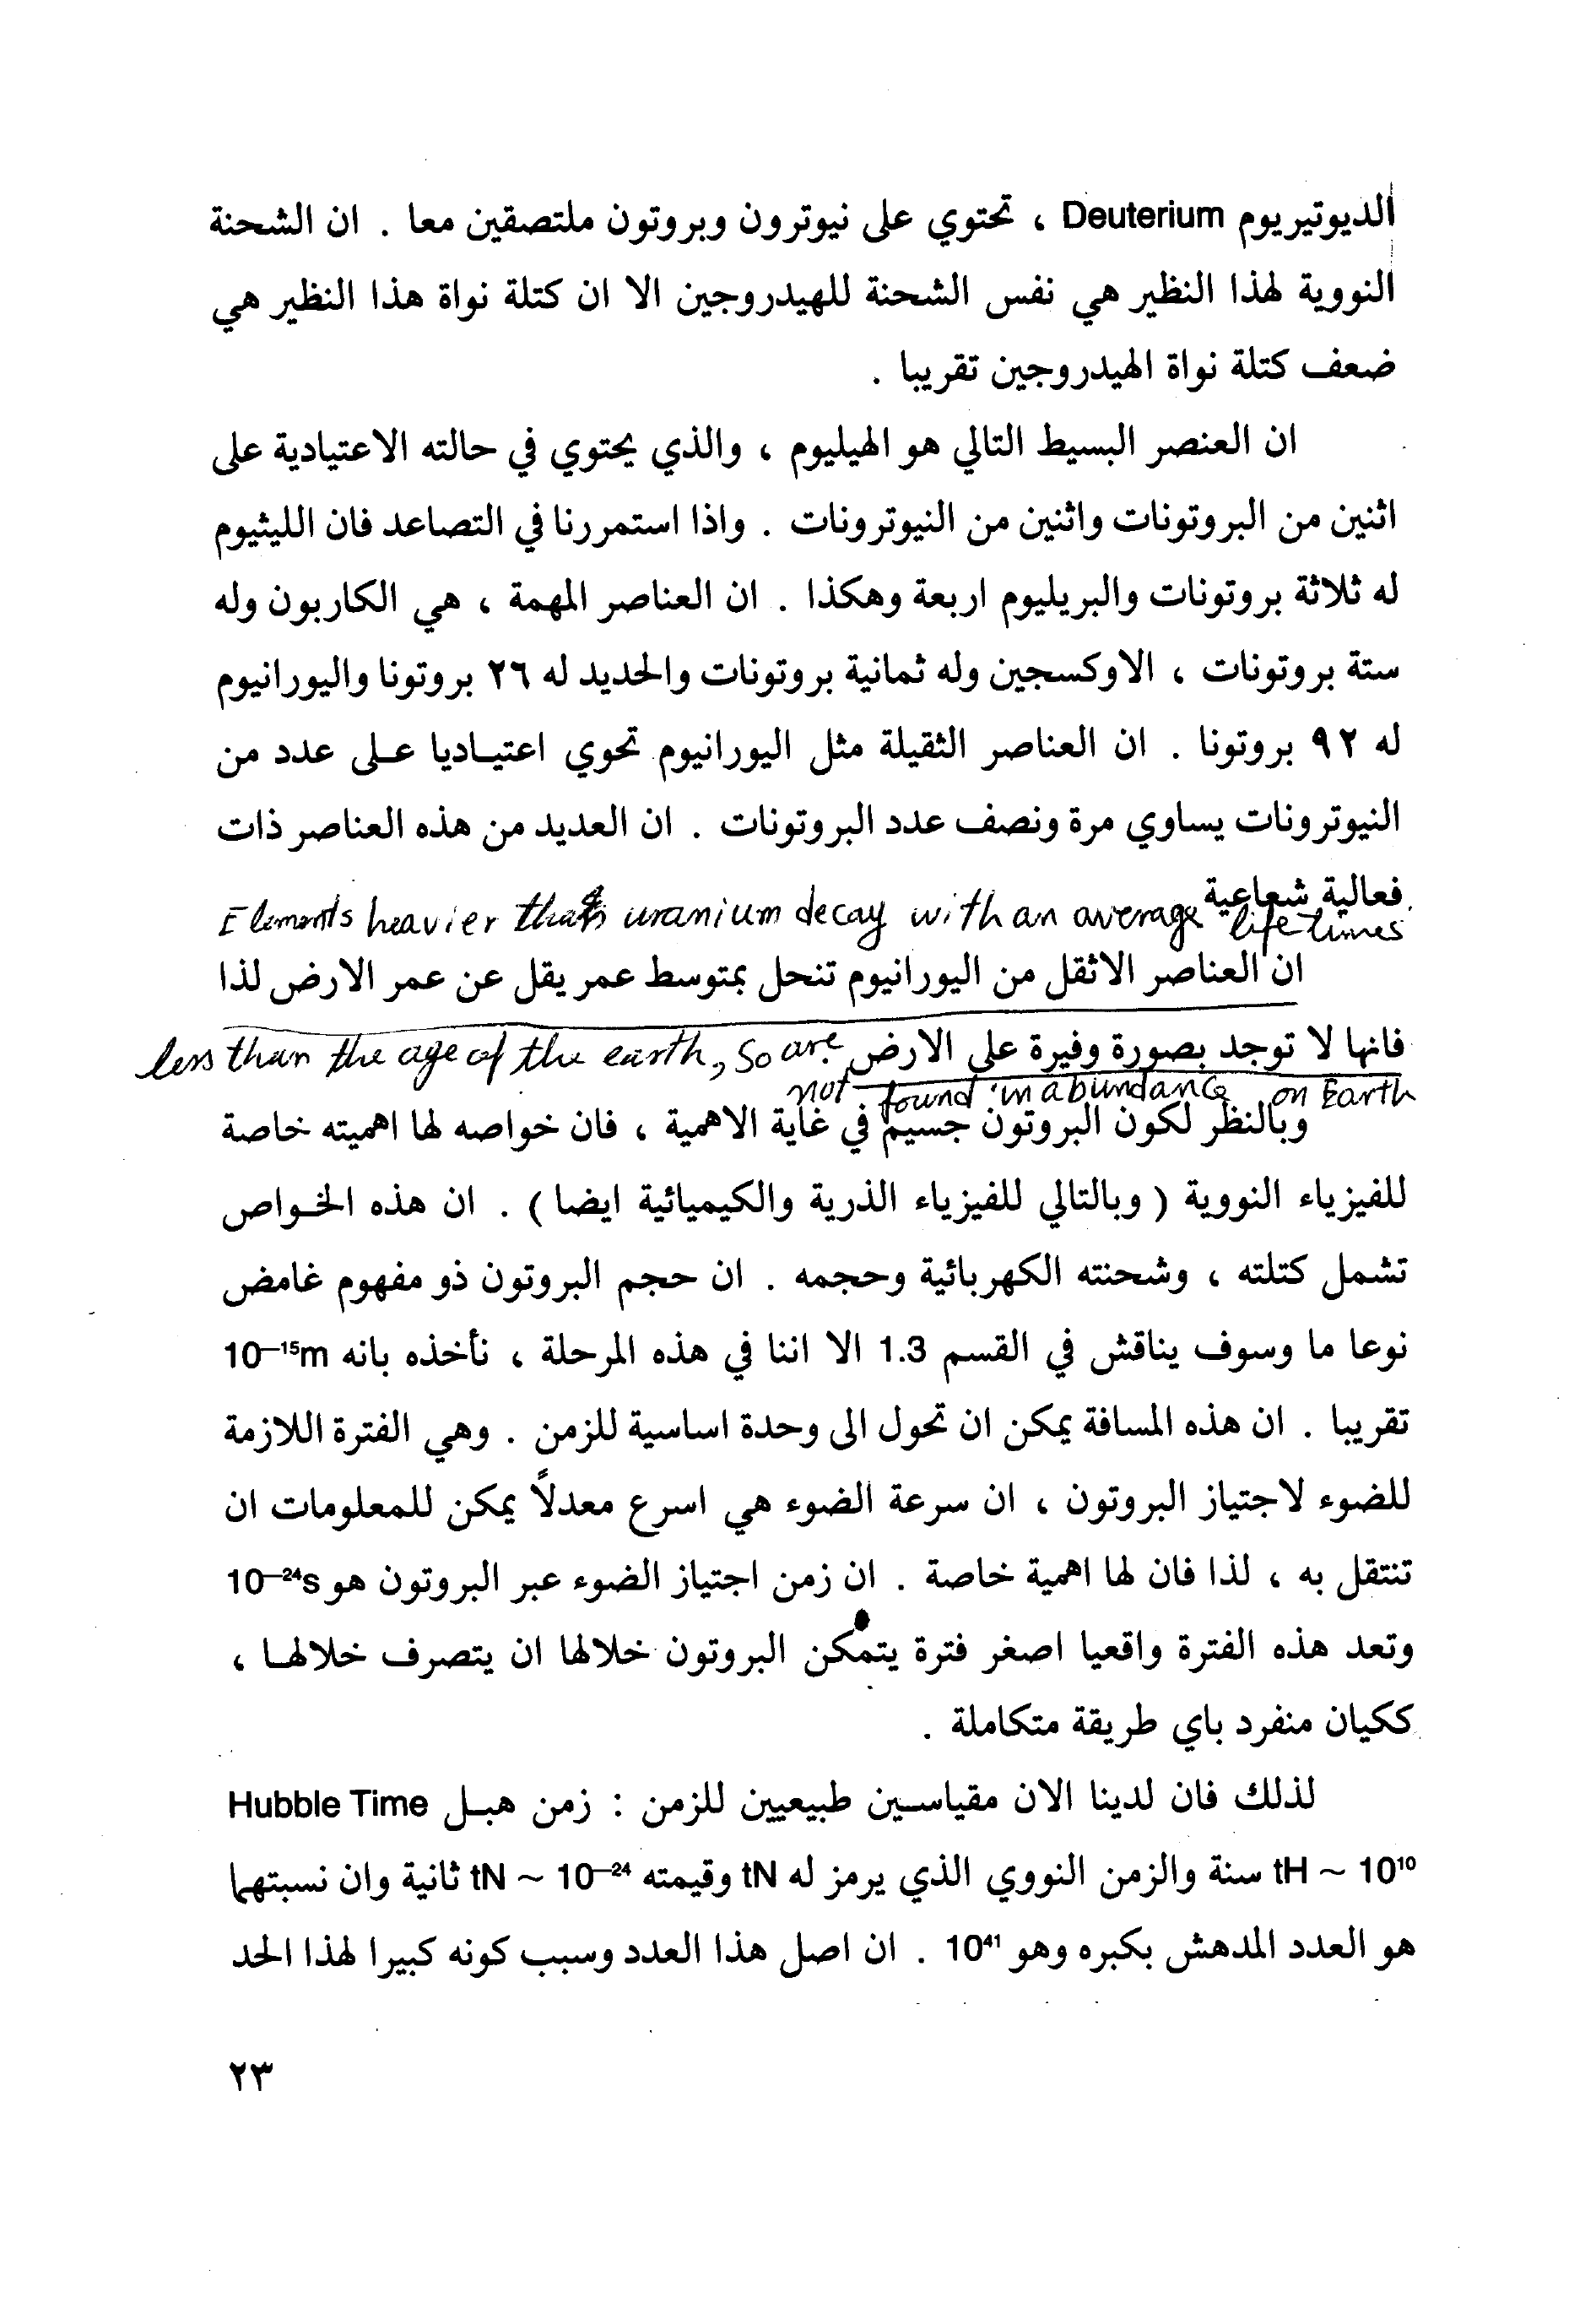 الديوتيريوم Deuterium ، تحتوي على نيوترون وبروتون ملتصقين معا . ان الشحنة
النووية لهذا النظير هي نفس الشحنة للهيدروجين الا ان كتلة نواة هذا النظير هي
ضعف كتلة نواة الهيدروجين تقريبا .
ان العنصر البسيط التالي هو الهيليوم ، والذي يحتوي في حالته الاعتيادية على
اثنين من البروتونات واثنين من النيوترونات . واذا استمررنا في التصاعد فان الليثيوم
له ثلاثة بروتونات والبريليوم اربعة وهكذا . ان العناصر المهمة ، هي الكاربون وله
ستة بروتونات ، الاوكسجين وله ثمانية بروتونات والحديد له ٢٦ بروتونا واليورانيوم
له ٩٢ بروتونا . ان العناصر الثقيلة مثل اليورانيوم تحوي اعتيـاديا عـلى عدد من
النيوترونات يساوي مرة ونصف عدد البروتونات . ان العديد من هذه العناصر ذات
فعالية شعاعية
Elements heavier than uranium decay with an average life times
ان العناصر الاثقل من اليورانيوم تنحل بمتوسط عمر يقل عن عمر الارض لذا
فانها لا توجد بصورة وفيرة على الارض
less than the age of the earth, so are
not found in abundance on Earth
وبالنظر لكون البروتون جسيم في غاية الاهمية ، فان خواصه لها اهميته خاصة
للفيزياء النووية ( وبالتالي للفيزياء الذرية والكيميائية ايضا ) . ان هذه الخـواص
تشمل كتلته ، وشحنته الكهربائية وحجمه . ان حجم البروتون ذو مفهوم غامض
نوعا ما وسوف يناقش في القسم 1.3 الا اننا في هذه المرحلة ، نأخذه بانه 10⁻¹⁵m
تقريبا . ان هذه المسافة يمكن ان تحول الى وحدة اساسية للزمن . وهي الفترة اللازمة
للضوء لاجتياز البروتون ، ان سرعة الضوء هي اسرع معدلاً يمكن للمعلومات ان
تنتقل به ، لذا فان لها اهمية خاصة . ان زمن اجتياز الضوء عبر البروتون هو 10⁻²⁴s
وتعد هذه الفترة واقعيا اصغر فترة يتمكن البروتون خلالها ان يتصرف خلالهـا ،
ككيان منفرد باي طريقة متكاملة .
لذلك فان لدينا الان مقياسـين طبيعيين للزمن : زمن هبـل Hubble Time
tH ~ 10¹⁰ سنة والزمن النووي الذي يرمز له tN وقيمته tN ~ 10⁻²⁴ ثانية وان نسبتهما
هو العدد المدهش بكبره وهو 10⁴¹ . ان اصل هذا العدد وسبب كونه كبيرا لهذا الحد
٢٣